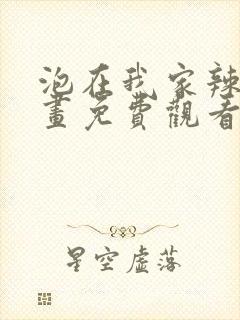 泡在我家辣
畫免費觀看
星空虛落